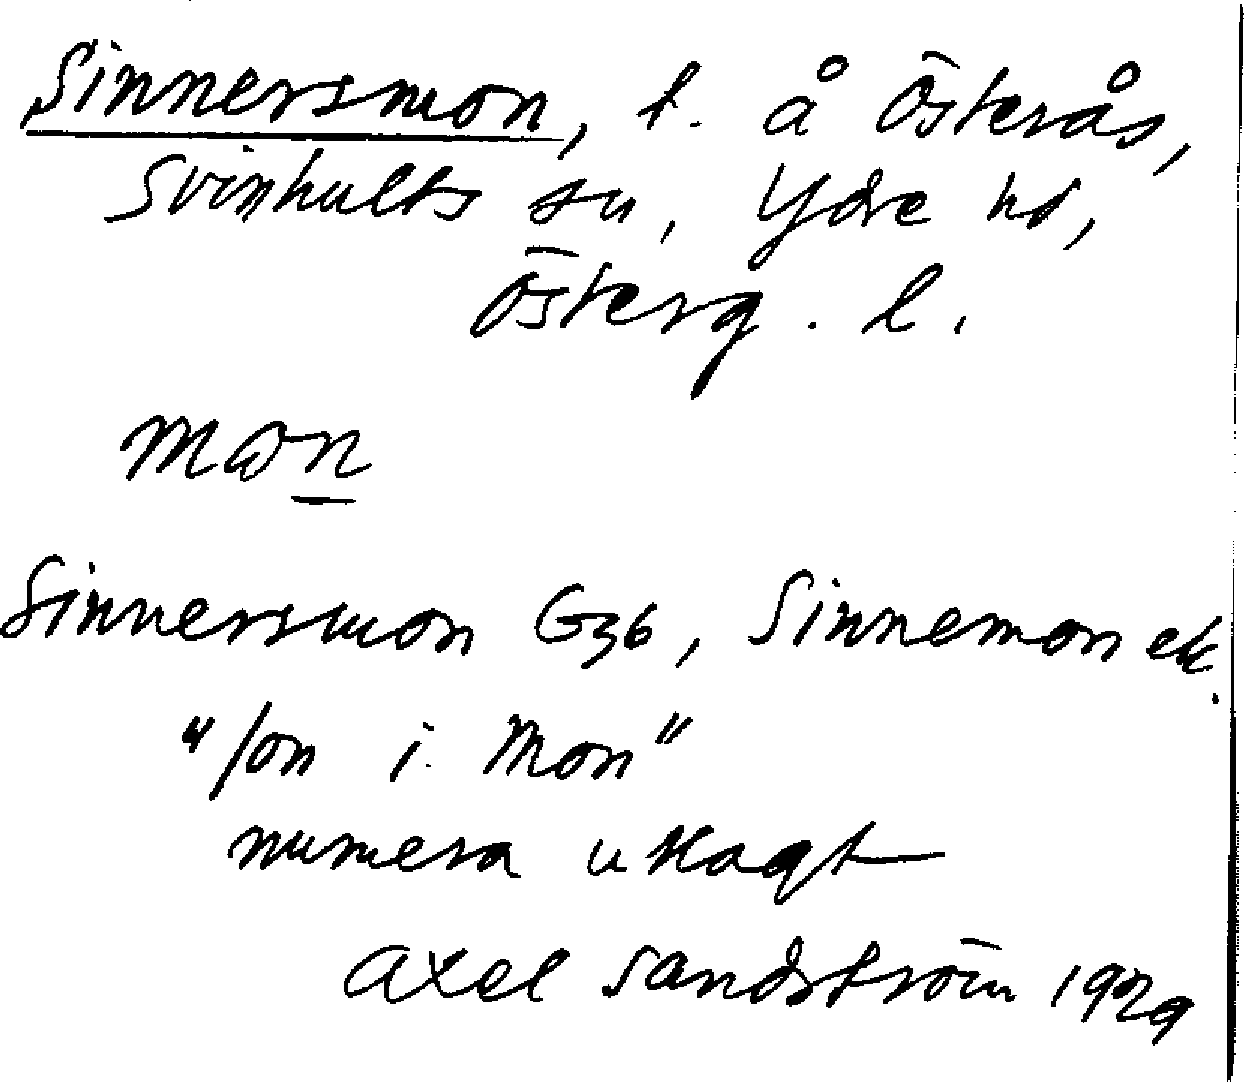 Sinnersmon, l. å Österås,
Svinhults sn, Ydre hd,
Österg. l.
mωn
Sinnersmon G36, Sinnemon ek.
"Jon i Mon"
numera utlagt
Axel Sandström 1929